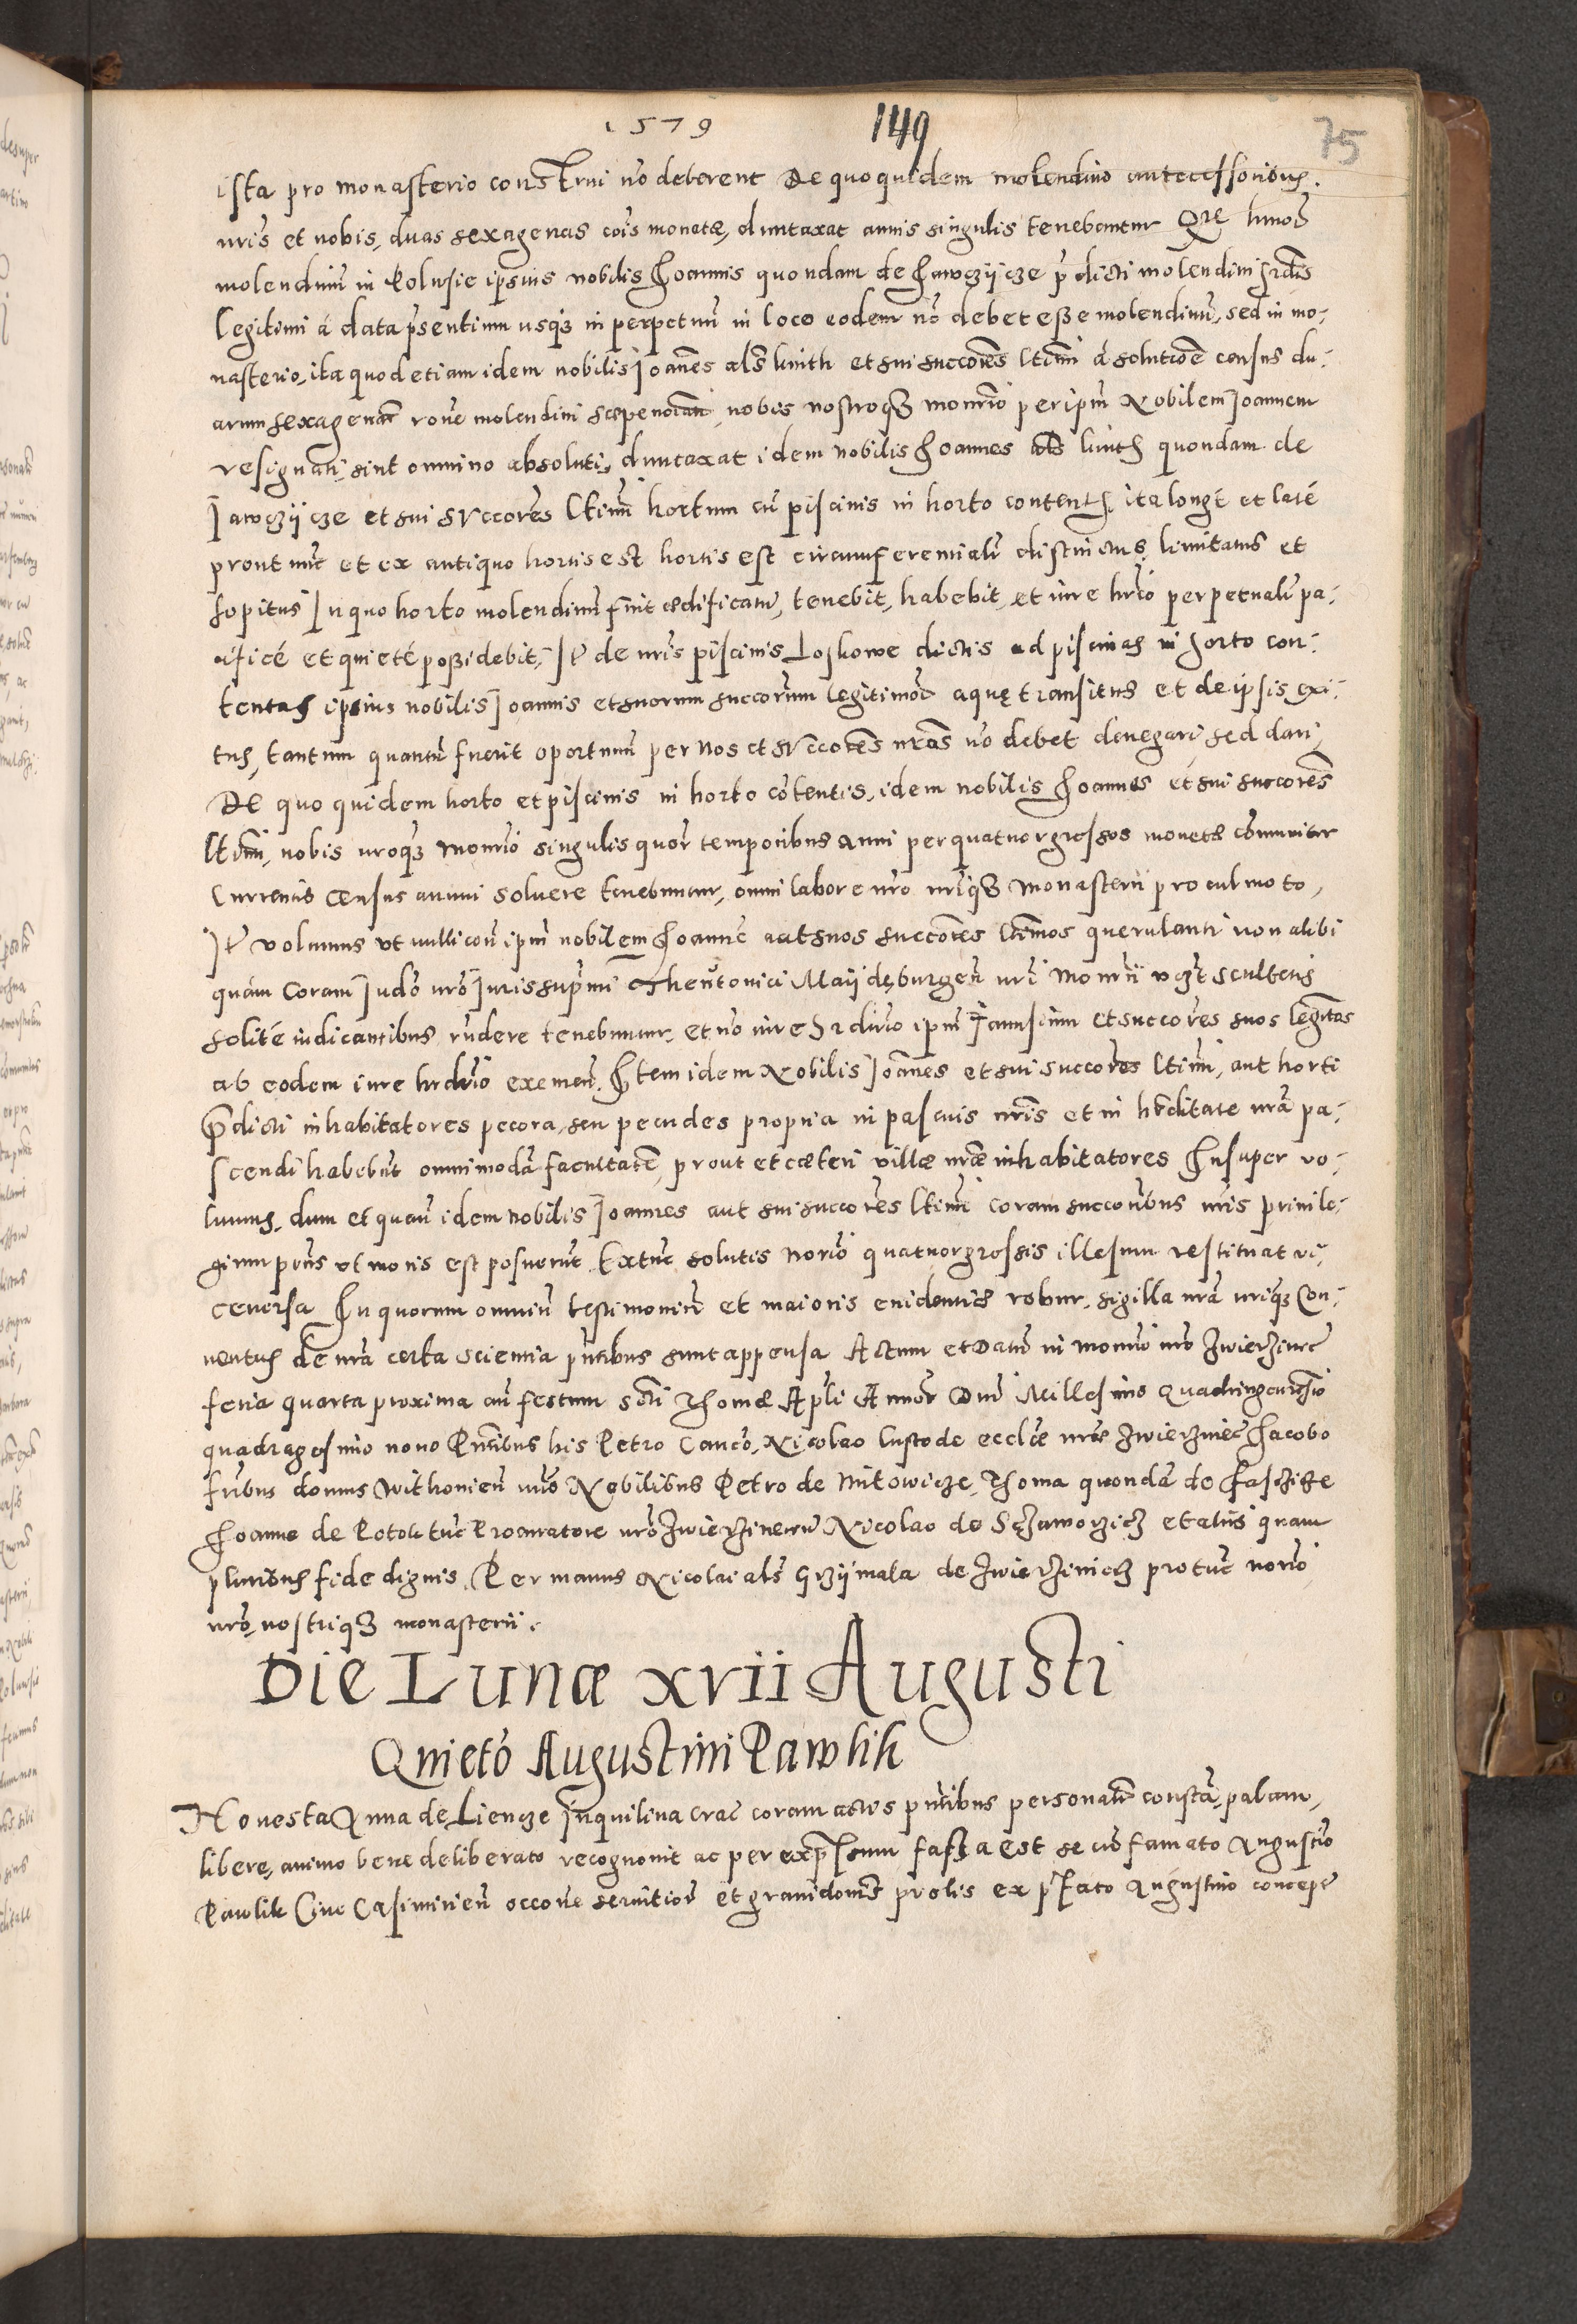 1579 149 75
ista pro monasterio construi nō deberent De quo quidem molendino antecessoribus.
nris et nobis, duas sexagenas cois monetæ, duntaxat annis singulis tenebantur Qre hmōi
molendinū in Polwsie ipsius nobilis Joannis quondam de Jawczijcze p̄dicti molendini
legitimi á data p̄sentium usq̨ in perpetuū in loco eodem nō debet eße molendinū, sed in mo-
nasterio, ita quod etiam idem nobilis Joañes als kmith et sui succōres ltimi á solutiōe census du-
arum sexagenar̄ rōne molendini sæpe nobis nostroq̨ monrio per ipm̄ Nobilem Joannem
resignati, sint omnino absoluti, duntaxat idem nobilis Joannes als kmith quondam de
Jawczijcze et sui succōres ltimi hortum cū piscinis in horto contentis, ita longé et laté
prout nūc et ex antiquo hortis est hortis est circumferentiali distinctus, limitatus et
sopitus In quo horto molendinū fuit ædificatū, tenebit, habebit, et iure hrio perpetuali pa-
cificé et quieté poßidebit, It de nris piscinis Loskowe dictis ad piscinas in horto con-
tentas ipsius nobilis Joannis et suorum succorum legitimor̄ aquę transitus et de ipsis exi-
tus, tantum quantū fuerit oportunū per nos et succōres nros nō debet denegari sed dari,
De quo quidem horto et piscinis in horto cōtentis, idem nobilis Joannes et sui succores
ltimi, nobis nroq̨ monrio singulis quor̄ temporibus anni per quatuor grossos monetæ cōmuniter
Currentis Census annui soluere tenebuntur, omni labore nro nriq̨ monasterii procul moto,
It volumus ut nulli ipm̄ nobilem Joannē aut suos succōres ltimos querulanti non alibi
quám Coram Judō nro Juris sup̄mi Theutonici Maijdęburgeñ nri monrii scultetis
solité iudicantibus rndere tenebuntur, et nō iure ipm̄ et succōres suos legitos
ab eodem iure exemeñ. Item idem Nobilis Joañes et sui succōres ltimi, aut horti
p̄dicti inhabitatores pecora, seu pecudes propria in pascuis nris et in hrditate nra pa-
scendi habebūt omnimodā facultatē, prout et cæteri villæ nræ inhabitatores Insuper vo-
lumus, dum et quañ idem nobilis Joannes aut sui succōres ltimi coram succoribus nris priuile-
gium pns ut moris est posuerūt Extūc solutis norio quatuor grossis illesum restituat vi-
ceversa In quorum omniū testimoniū et maioris euidentiæ robur, sigilla nra nriq̨ Con-
uentus de nra certa scientia pntibus sunt appensa Actum et Datū in monrio nro Zwierzinec
feria quarta proxima añ festum scti Thomæ Apli Annor̄ Dni Millesimo Quadringentesio
quadragesimo nono Pntibus his Petro Canco, Nicolao Custode ecclæ nræ Zwierzinec Jacobo
fribus domus Withonieñ Nobilibus Petro de Mitowicze, Thoma quondā de
Joanne de Potok tūc Procuratore nro Zwierzinecen̄ Nicolao de et aliis quam
pluribus fide dignis. Per manus Nicolai als Grzijmala de Zwierziniecz pro tūc norio
nro, nostriq̨ monasterii.
Die Lunæ xvii Augusti
Quietō Augustini Pawlik
Honesta Anna de Liencze Inquilina Crac coram actis pntibus personalr̄ constā, palam,
libere, animo bene deliberato recognouit ac per exp̄ssum faßa est se cū famato Augustio
Pawlik Ciue Casimirieñ occōne seruitior̄ et grauidonis prolis ex p̄fato Augustino concept